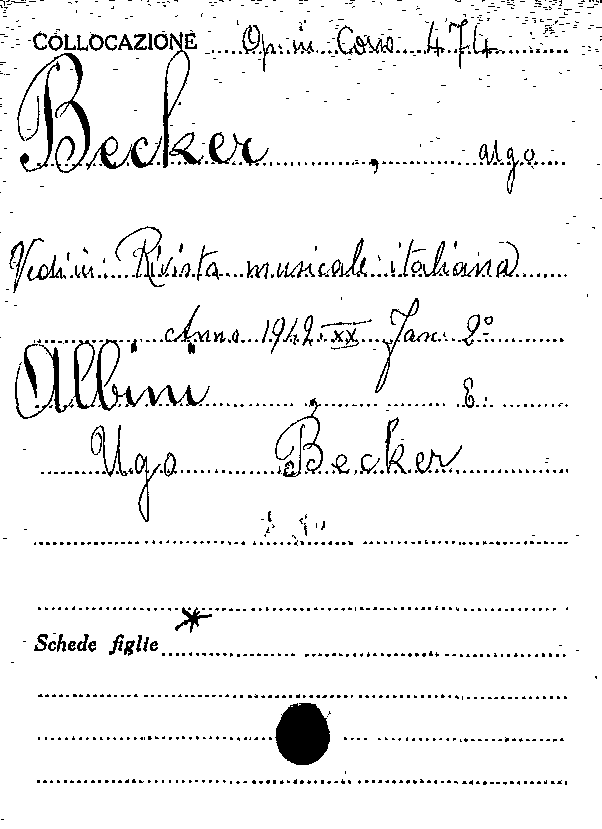 COLLOCAZIONE Op. in Corso 474
Becker, ugo
Vedi in: Rivista musicale italiana
Anno 1942 XX Fasc. 2º
Albini, E.
Ugo Becker
Schede figlie